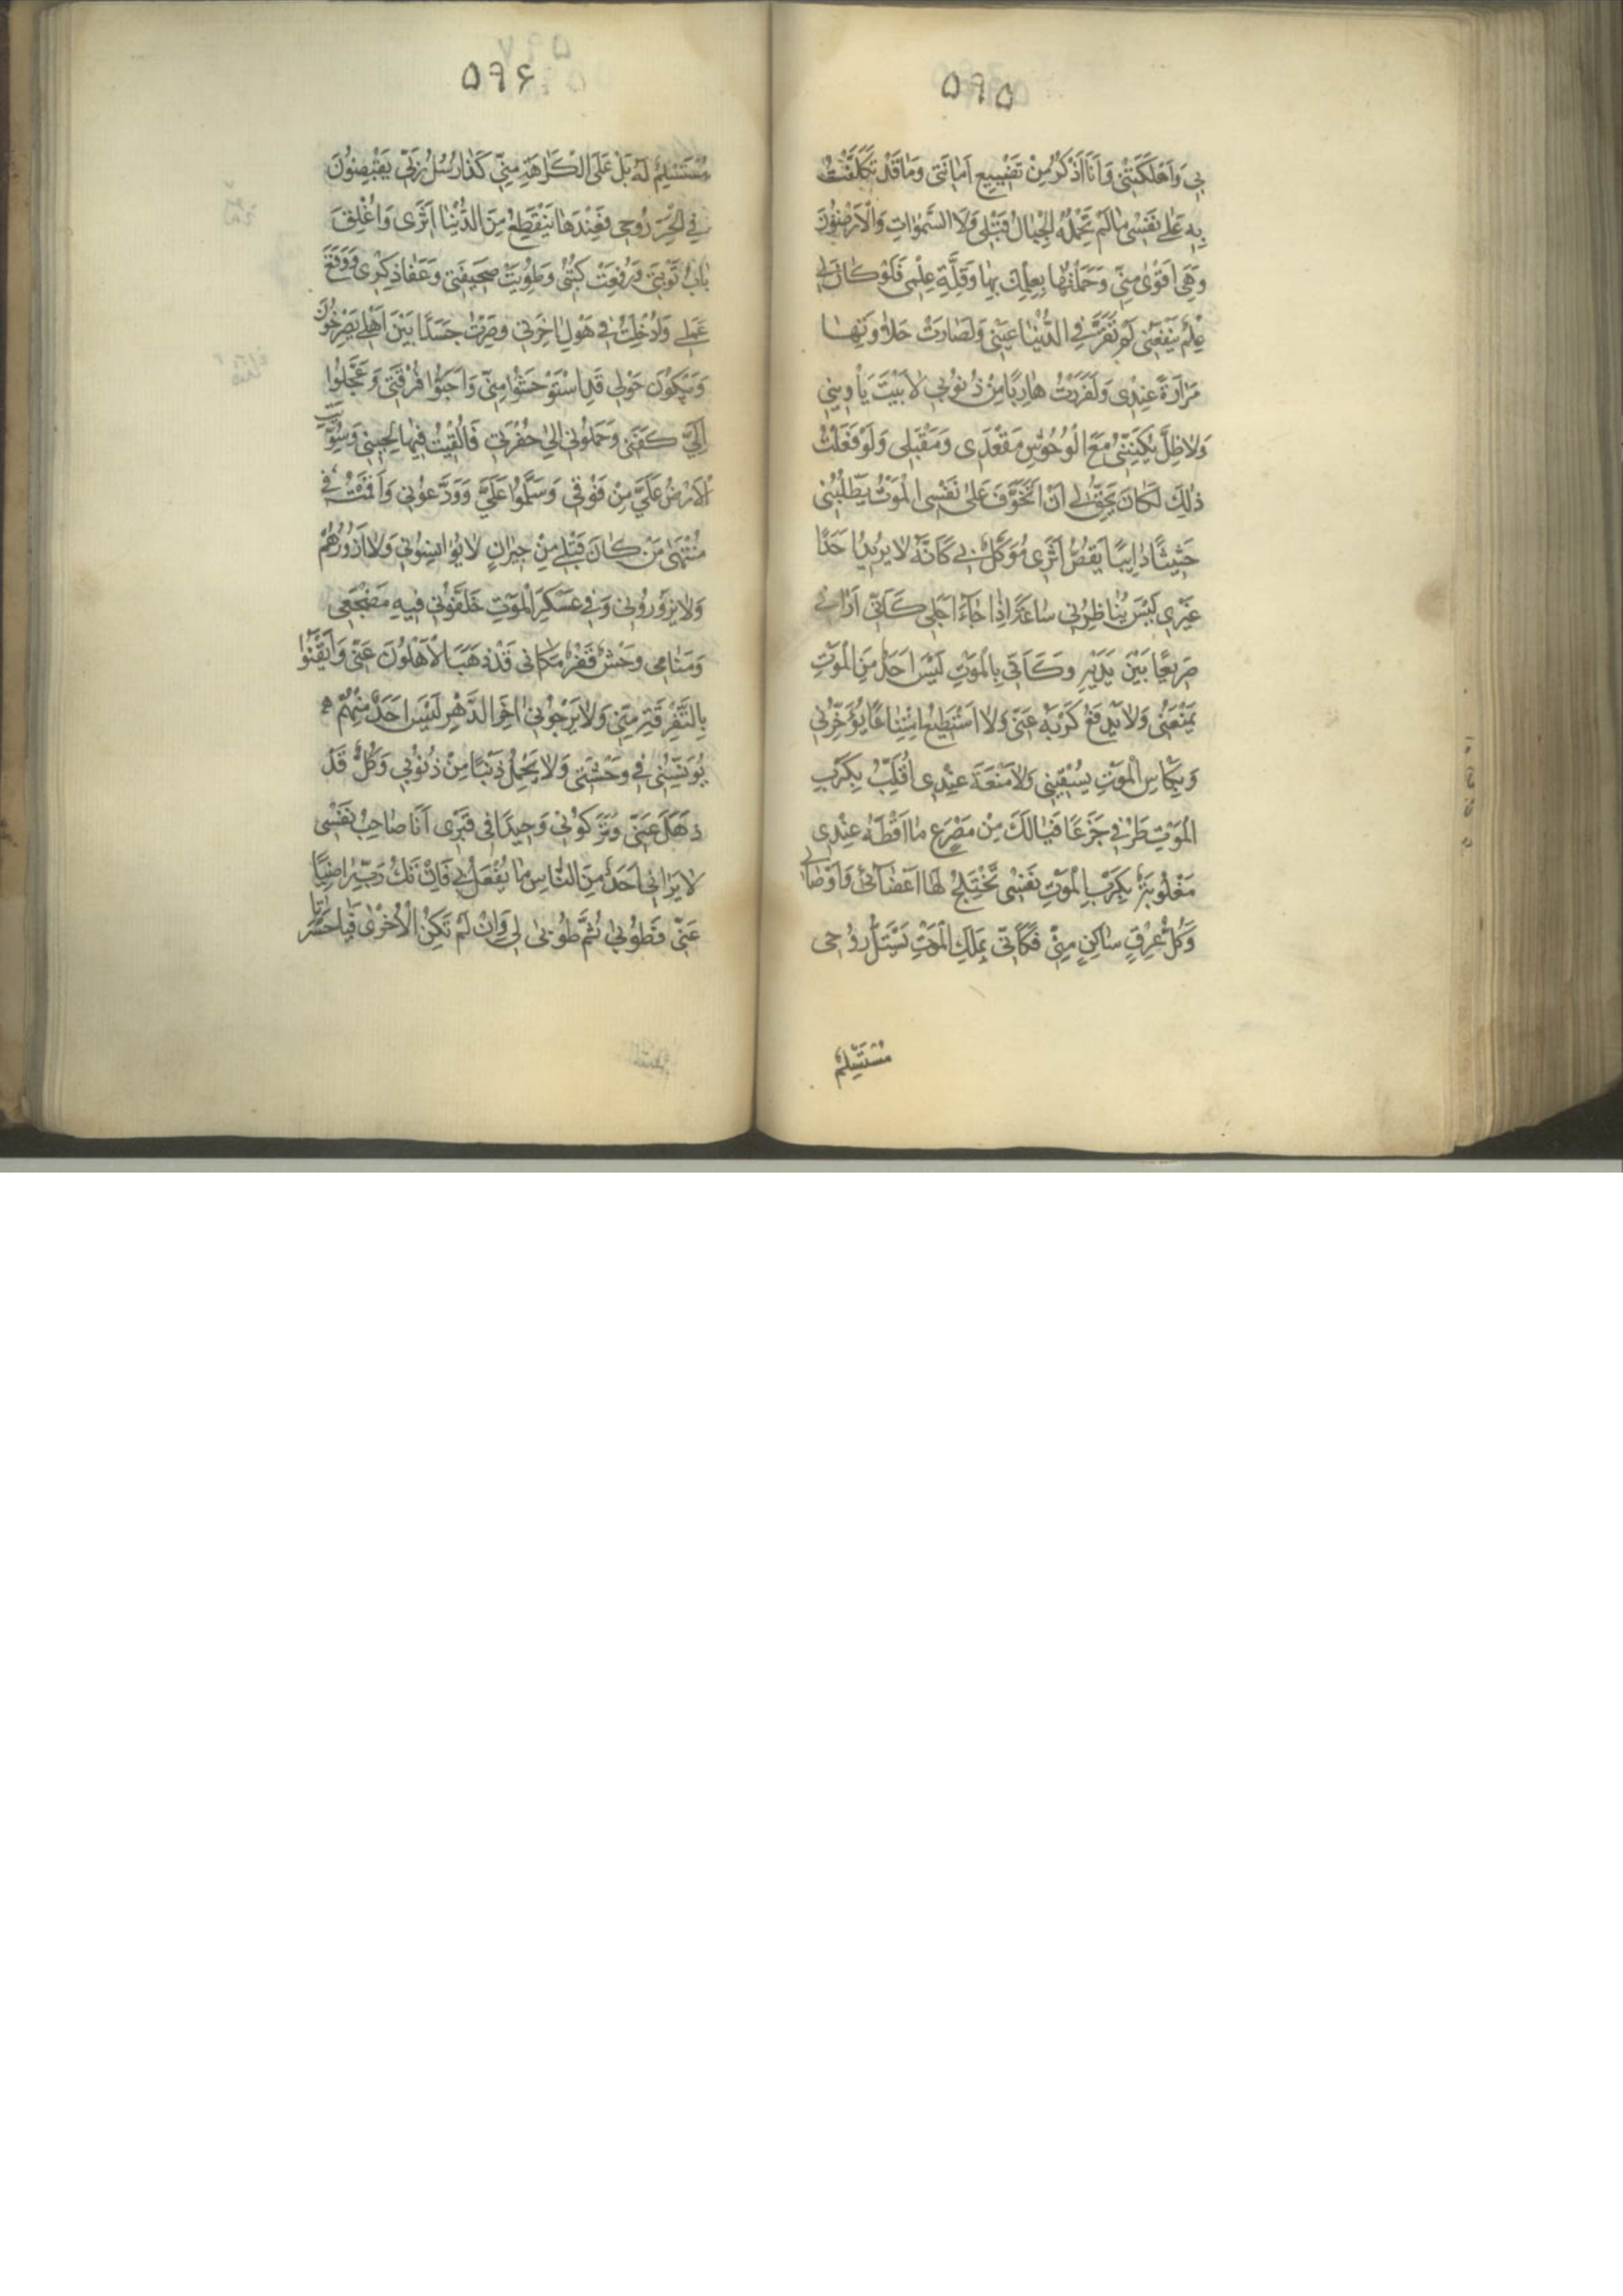 ۵۹۵
بِي وَاَهْلَكَتْنِي وَاَنَا اَذْكُرُ مِنْ تَضْيِيعِ اَمَانَتِي وَمَا قَدْ تَكَلَّفْتُ
بِهِ عَلٰى نَفْسِي مَا لَمْ تَحْمِلْهُ الْجِبَالُ قَبْلِي وَلَا السَّمٰوَاتُ وَالْاَرَضُونَ
وَهِيَ اَقْوٰى مِنِّي وَحَمَلْتُهَا بِعِلْمِكَ بِهَا وَقِلَّةِ عِلْمِي فَلَوْ كَانَ لِي
عِلْمٌ يَنْفَعُنِي لَمْ تَقَرَّ فِي الدُّنْيَا عَيْنِي وَلَصَارَتْ حَلَاوَتُهَا
مَرَارَةً عِنْدِي وَلَفَرَرْتُ هَارِبًا مِنْ ذُنُوبِي لَا بَيْتَ يَأْوِينِي
وَلَا ظِلَّ يُكِنُّنِي مَعَ الْوُحُوشِ مَقْعَدِي وَمَقِيلِي وَلَوْ فَعَلْتُ
ذٰلِكَ لَكَانَ يَحِقُّ لِي اَنْ اَتَخَوَّفَ عَلٰى نَفْسِي الْمَوْتُ يَطْلُبُنِي
حَثِيثًا دَائِبًا يَقُصُّ اَثَرِي مُوَكَّلٌ بِي كَاَنَّهُ لَا يُرِيدُ اَحَدًا
غَيْرِي لَيْسَ يُنَاظِرُنِي سَاعَةً اِذَا جَاءَ اَجَلِي كَاَنِّي اَرَانِي
صَرِيعًا بَيْنَ يَدَيْهِ وَكَاَنِّي بِالْمَوْتِ لَيْسَ اَحَدٌ مِنَ الْمَوْتِ
يَمْنَعُنِي وَلَا يَدْفَعُ كَرْبَهُ عَنِّي وَلَا اَسْتَطِيعُ امْتِنَاعًا يُؤَخِّرُنِي
وَبِكَاسِ الْمَوْتِ يَسْقِينِي وَلَا مَنَعَةَ عِنْدِي اُقَلَّبُ بِكَرْبِ
الْمَوْتِ طَرْفِي جَزَعًا فَيَا لَكَ مِنْ مَصْرَعٍ مَا اَفْظَعَهُ عِنْدِي
مَغْلُوبَةٌ بِكَرْبِ الْمَوْتِ نَفْسِي تَخْتَلِجُ لَهَا اَعْضَائِي وَاَوْصَالِي
وَكُلُّ عِرْقٍ سَاكِنٍ مِنِّي فَكَاَنِّي بِمَلَكِ الْمَوْتِ يَسْتَلُّ رُوحِي
مُسْتَسْلِمٌ
۵۹۶
مُسْتَسْلِمٌ لَهُ بَلْ عَلَى الْكَرَاهَةِ مِنِّي كَذَا رُسُلُ رَبِّي يَقْبِضُونَ
فِي الْحَرِّ رُوحِي فَعِنْدَهَا يَنْقَطِعُ مِنَ الدُّنْيَا اَثَرِي وَاُغْلِقَ
بَابُ تَوْبَتِي وَرُفِعَتْ كُتُبِي وَطُوِيَتْ صَحِيفَتِي وَعَفَا ذِكْرِي وَرُفِعَ
عَمَلِي وَاُدْخِلْتُ فِي هَوْلِ اٰخِرَتِي وَصِرْتُ جَسَدًا بَيْنَ اَهْلِي يَصْرُخُونَ
وَيَبْكُونَ حَوْلِي قَدِ اسْتَوْحَشُوا مِنِّي وَاَحَبُّوا فُرْقَتِي وَعَجَّلُوا
اِلَيَّ كَفَنِي وَحَمَلُونِي اِلٰى حُفْرَتِي فَاُلْقِيتُ فِيهَا لِجَنْبِي وَسُوِّيَتِ
الْاَرْضُ عَلَيَّ مِنْ فَوْقِي وَسَلَّمُوا عَلَيَّ وَوَدَّعُونِي وَاَقَمْتُ فِي
مُنْتَهٰى مَنْ كَانَ قَبْلِي مِنْ جِيرَانٍ لَا يُؤَانِسُونِي وَلَا اَزُورُهُمْ
وَلَا يَزُورُونِي وَفِي عَسْكَرِ الْمَوْتِ خَلَّفُونِي فِيهِ مَضْجَعِي
وَمَنَامِي وَحْشٌ قَفْرٌ مَكَانِي قَدْ ذَهَبَ الْاَهْلُونَ عَنِّي وَاَيْقَنُوا
بِالتَّفْرِقَةِ مِنِّي وَلَا يَرْجُونِي اٰخِرَ الدَّهْرِ لَيْسَ اَحَدٌ مِنْهُمْ
يُونِسُنِي فِي وَحْشَتِي وَلَا يَحْمِلُ ذَنْبًا مِنْ ذُنُوبِي وَكُلٌّ قَدْ
ذَهَلَ عَنِّي وَتَرَكُونِي وَحِيدًا فِي قَبْرِي اَنَا صَاحِبُ نَفْسِي
لَا يَرَانِي اَحَدٌ مِنَ النَّاسِ مَا يُفْعَلُ بِي فَاِنْ تَكُ رَبِّ رَاضِيًا
عَنِّي فَطُوبٰى ثُمَّ طُوبٰى لِي وَاِنْ لَمْ تَكُنِ الْاُخْرٰى فَيَا حَسْرَتَا